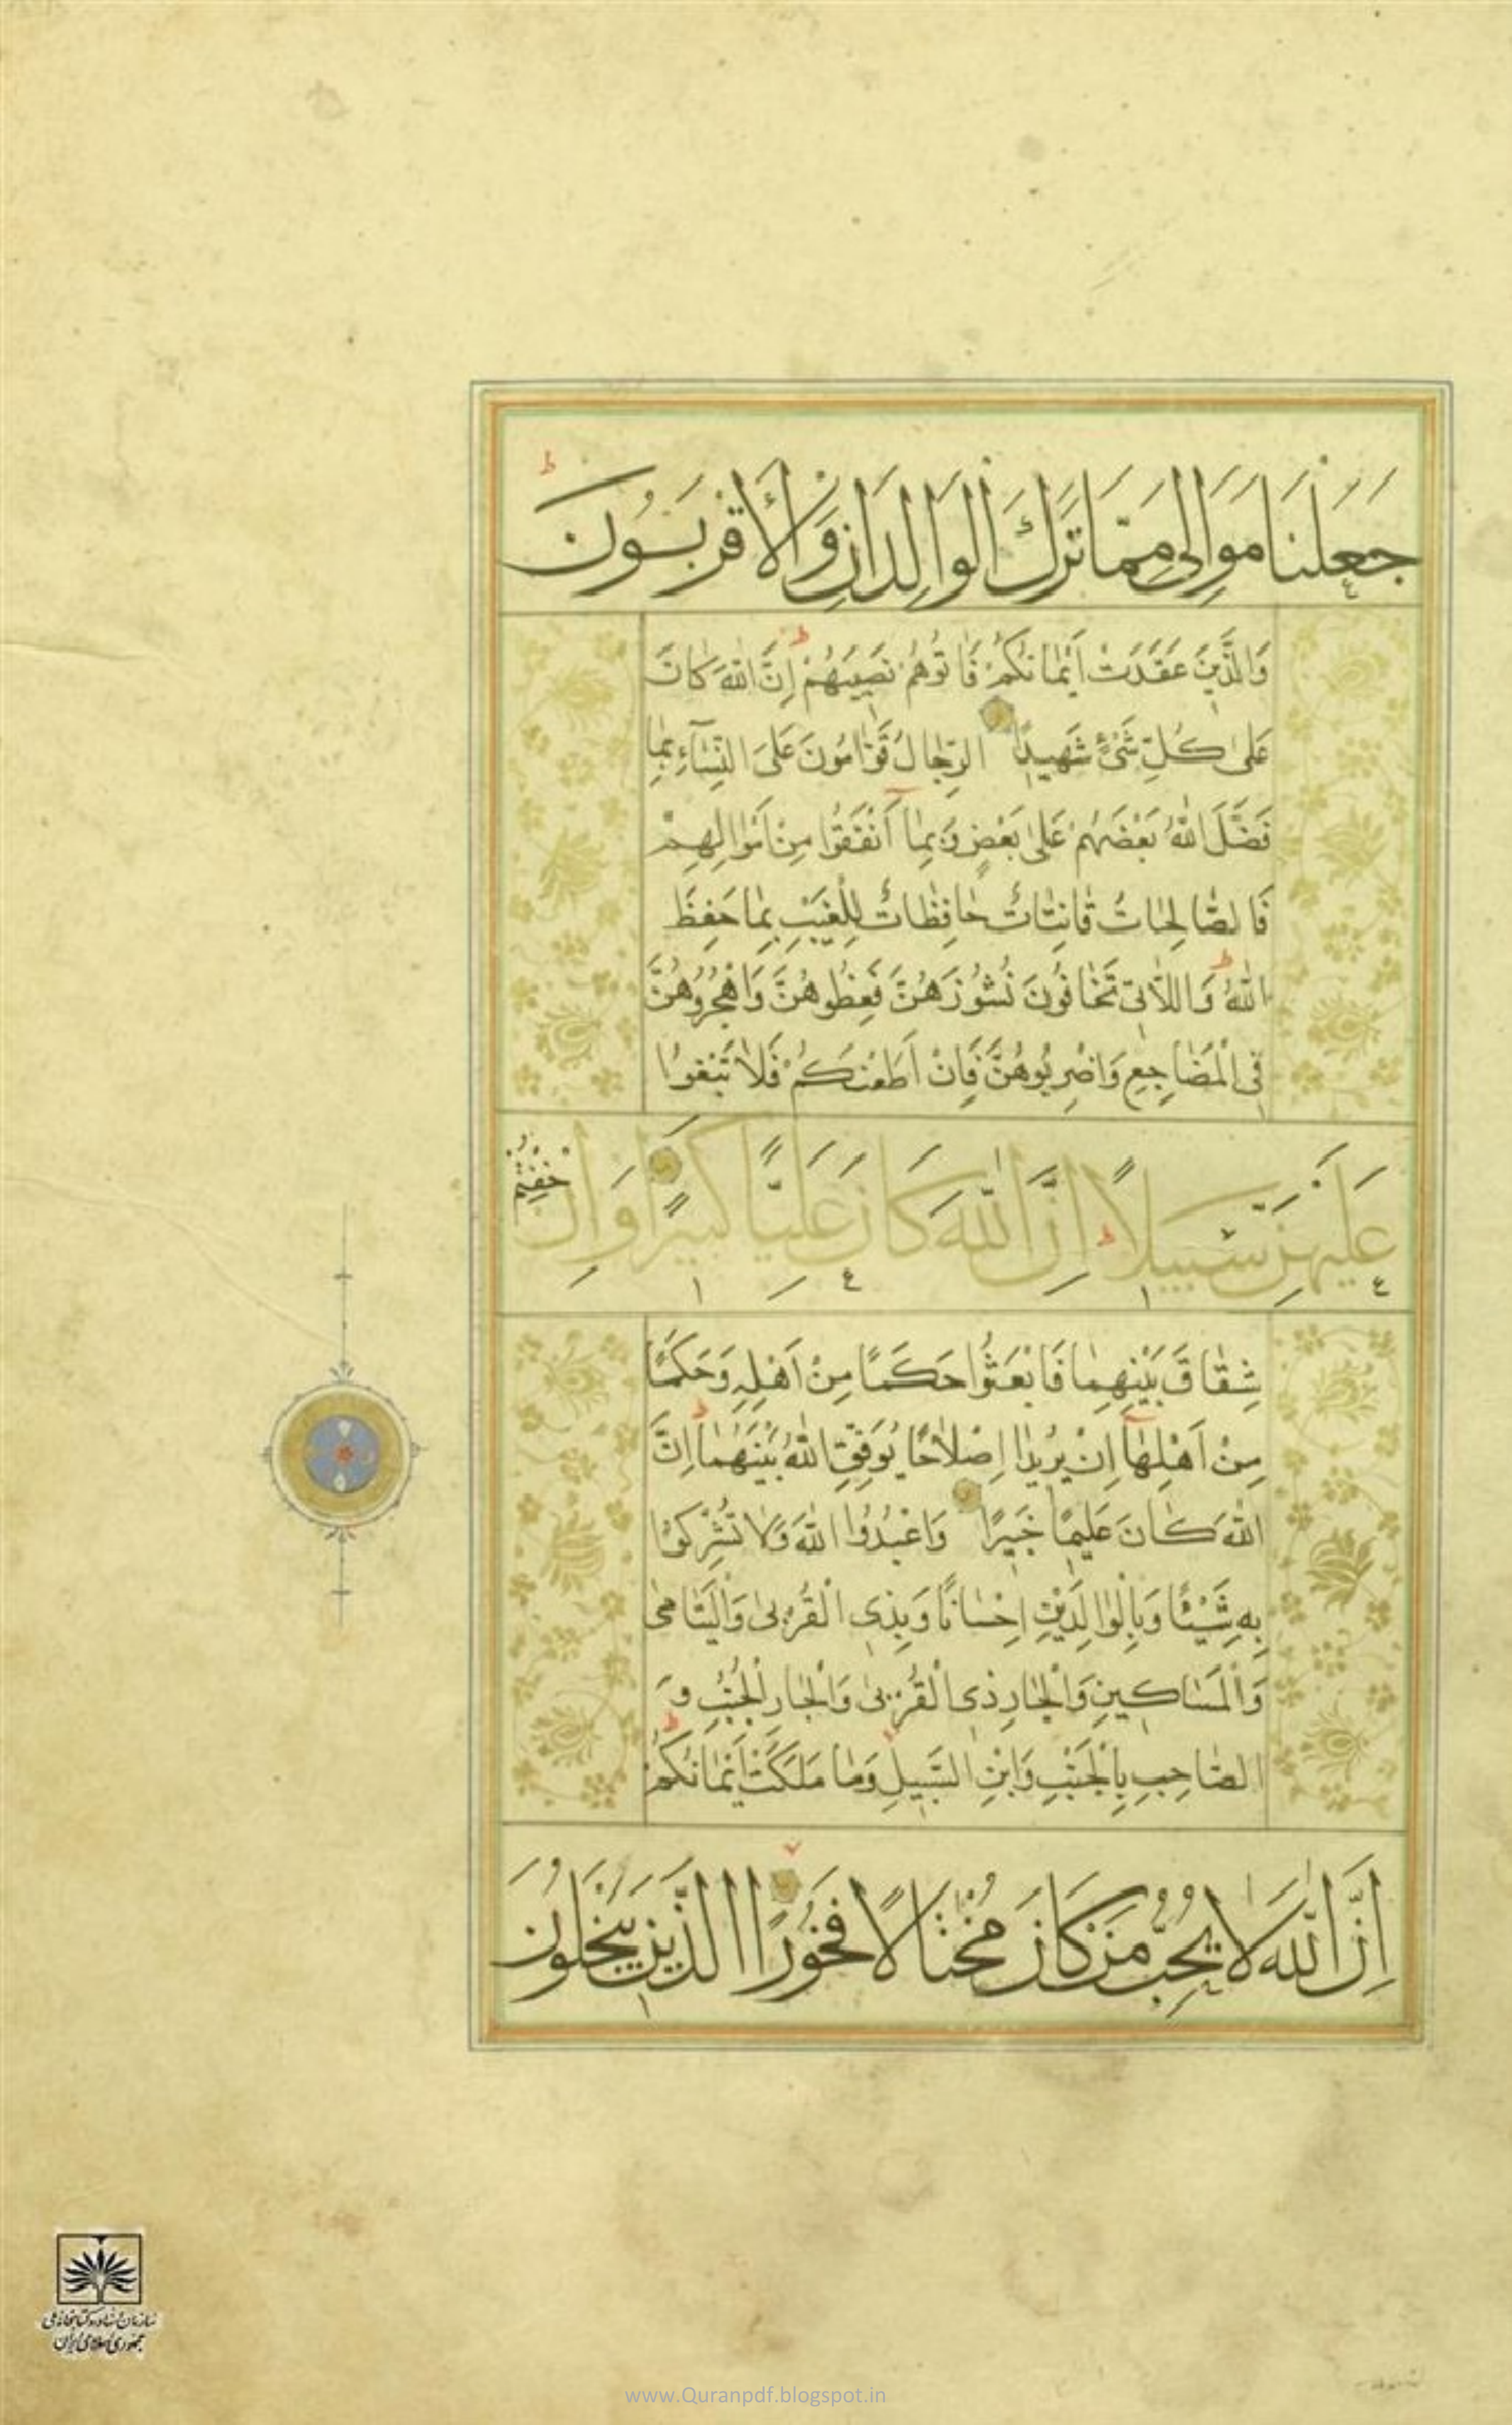 جَعَلْنَا مَوَالِىَ مِمَّا تَرَكَ الْوَالِدَانِ وَالْأَقْرَبُونَ ط
وَالَّذِينَ عَقَدَتْ أَيْمَانُكُمْ فَاٰتُوهُمْ نَصِيبَهُمْ ط إِنَّ اللّٰهَ كَانَ
عَلىٰ كُلِّ شَيْءٍ شَهِيدًا الرِّجَالُ قَوَّامُونَ عَلَى النِّسَآءِ بِمَا
فَضَّلَ اللّٰهُ بَعْضَهُمْ عَلىٰ بَعْضٍ وَبِمَآ أَنْفَقُوا مِنْ أَمْوَالِهِمْ
فَالصَّالِحَاتُ قَانِتَاتٌ حَافِظَاتٌ لِلْغَيْبِ بِمَا حَفِظَ
اللّٰهُ ط وَاللَّاتِى تَخَافُونَ نُشُوزَهُنَّ فَعِظُوهُنَّ وَاهْجُرُوهُنَّ
فِى الْمَضَاجِعِ وَاضْرِبُوهُنَّ فَإِنْ أَطَعْنَكُمْ فَلَا تَبْغُوا
عَلَيْهِنَّ سَبِيلًا ط إِنَّ اللّٰهَ كَانَ عَلِيًّا كَبِيرًا وَإِنْ خِفْتُمْ
شِقَاقَ بَيْنِهِمَا فَابْعَثُوا حَكَمًا مِنْ أَهْلِهِ وَحَكَمًا
مِنْ أَهْلِهَآ إِنْ يُرِيدَا إِصْلَاحًا يُوَفِّقِ اللّٰهُ بَيْنَهُمَا ط إِنَّ
اللّٰهَ كَانَ عَلِيمًا خَبِيرًا وَاعْبُدُوا اللّٰهَ وَلَا تُشْرِكُوا
بِهِ شَيْئًا وَبِالْوَالِدَيْنِ إِحْسَانًا وَبِذِى الْقُرْبىٰ وَالْيَتَامىٰ
وَالْمَسَاكِينِ وَالْجَارِ ذِى الْقُرْبىٰ وَالْجَارِ الْجُنُبِ وَ
الصَّاحِبِ بِالْجَنْبِ وَابْنِ السَّبِيلِ وَمَا مَلَكَتْ أَيْمَانُكُمْ ط
إِنَّ اللّٰهَ لَا يُحِبُّ مَنْ كَانَ مُخْتَالًا فَخُورًا الَّذِينَ يَبْخَلُونَ
سازمان اسناد و کتابخانه ملی
جمهوری اسلامی ایران
www.Quranpdf.blogspot.in